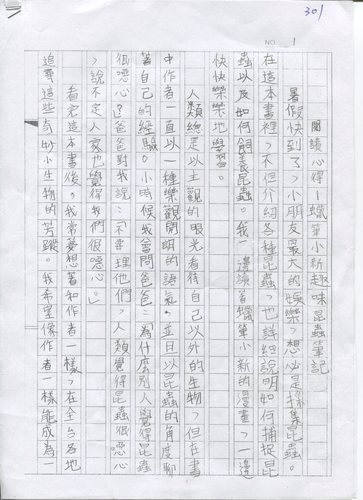 301
NO. 1
閱讀心得：蠟筆小新趣味昆蟲筆記
暑假快到了，小朋友最大的娛樂，想必是採集昆蟲。
在這本書裡，不但介紹各種昆蟲，也詳細說明如何捕捉昆
蟲以及如何飼養昆蟲。我一邊讀著蠟筆小新的漫畫，一邊
快快樂樂地學習。
人類總是以主觀的眼光看待自己以外的生物，但在書
中作者一直以一種樂觀開明的語氣，並且以昆蟲的角度聊
著自己的經驗。小時候我曾問爸爸：為什麼別人覺得昆蟲
很噁心？爸爸對我說：不要理他們，人類覺得昆蟲很噁心
，說不定人家也覺得我們很噁心。」
看完這本書後，我常夢想著和作者一樣，在全台各地
追尋這些奇妙小生物的芳蹤。我希望像作者一樣能成為一